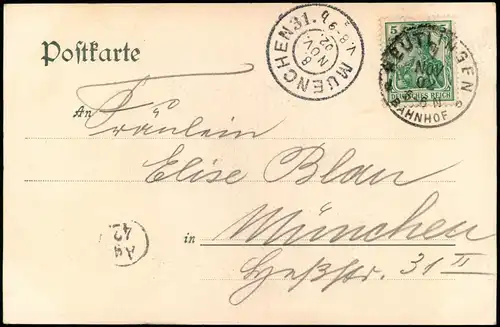 Postkarte
MUENCHEN 31.
8
NOV
02
V.8-9
5
DEUTSCHES REICH
REUTLINGEN
NOV
BAHNHOF
An Fräulein
Elise Blau
in München
Heßstr. 31 II
Ag
42